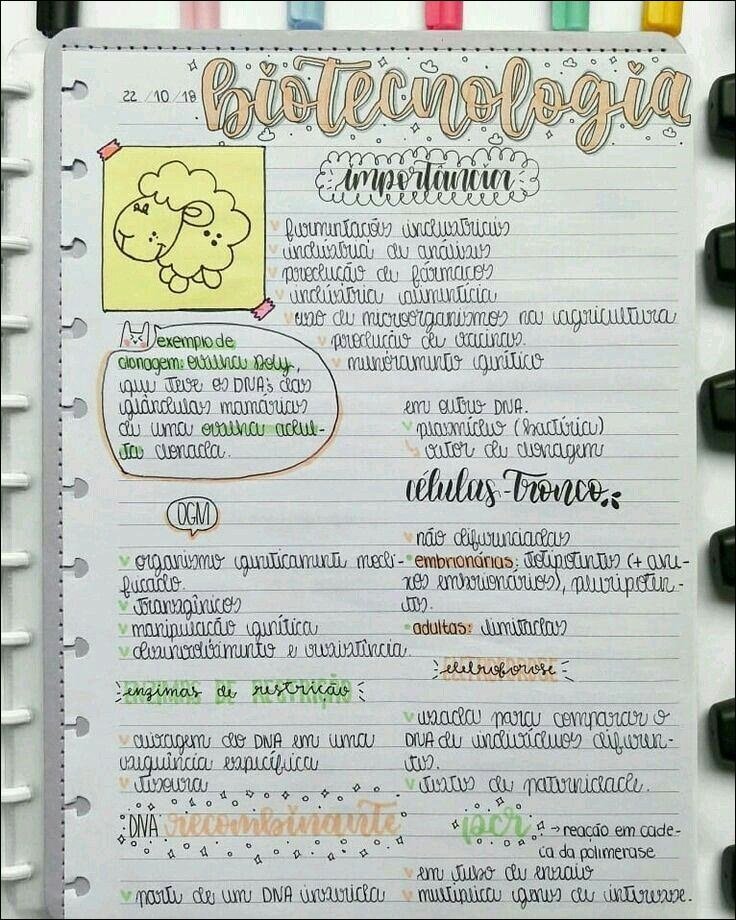 22/10/18 biotecnologia
importância
fermentações industriais
indústria de análises
produção de fármacos
indústria alimentícia
uso de microorganismos na agricultura
produção de vacinas.
melhoramento genético
exemplo de
clonagem: ovelha Dolly,
que teve os DNA's das
glândulas mamárias
de uma ovelha adul-
ta clonada.
OGM
organismo geneticamente modi-
ficado.
transgênicos
manipulação genética
desenvolvimento e resistência
enzimas de restrição
clivagem do DNA em uma
sequência específica
tesoura
DNA recombinante
parte de um DNA inserida
em outro DNA.
plasmídeo (bactéria)
vetor de clonagem
células-tronco
não diferenciadas
embrionárias: totipotentes (+ ane-
xos embrionários), pluripoten-
tes.
adultas: limitadas
eletroforese
usada para comparar o
DNA de indivíduos diferen-
tes.
testes de paternidade.
pcr → reação em cade-
ia da polimerase
em tubo de ensaio
multiplica genes de interesse.